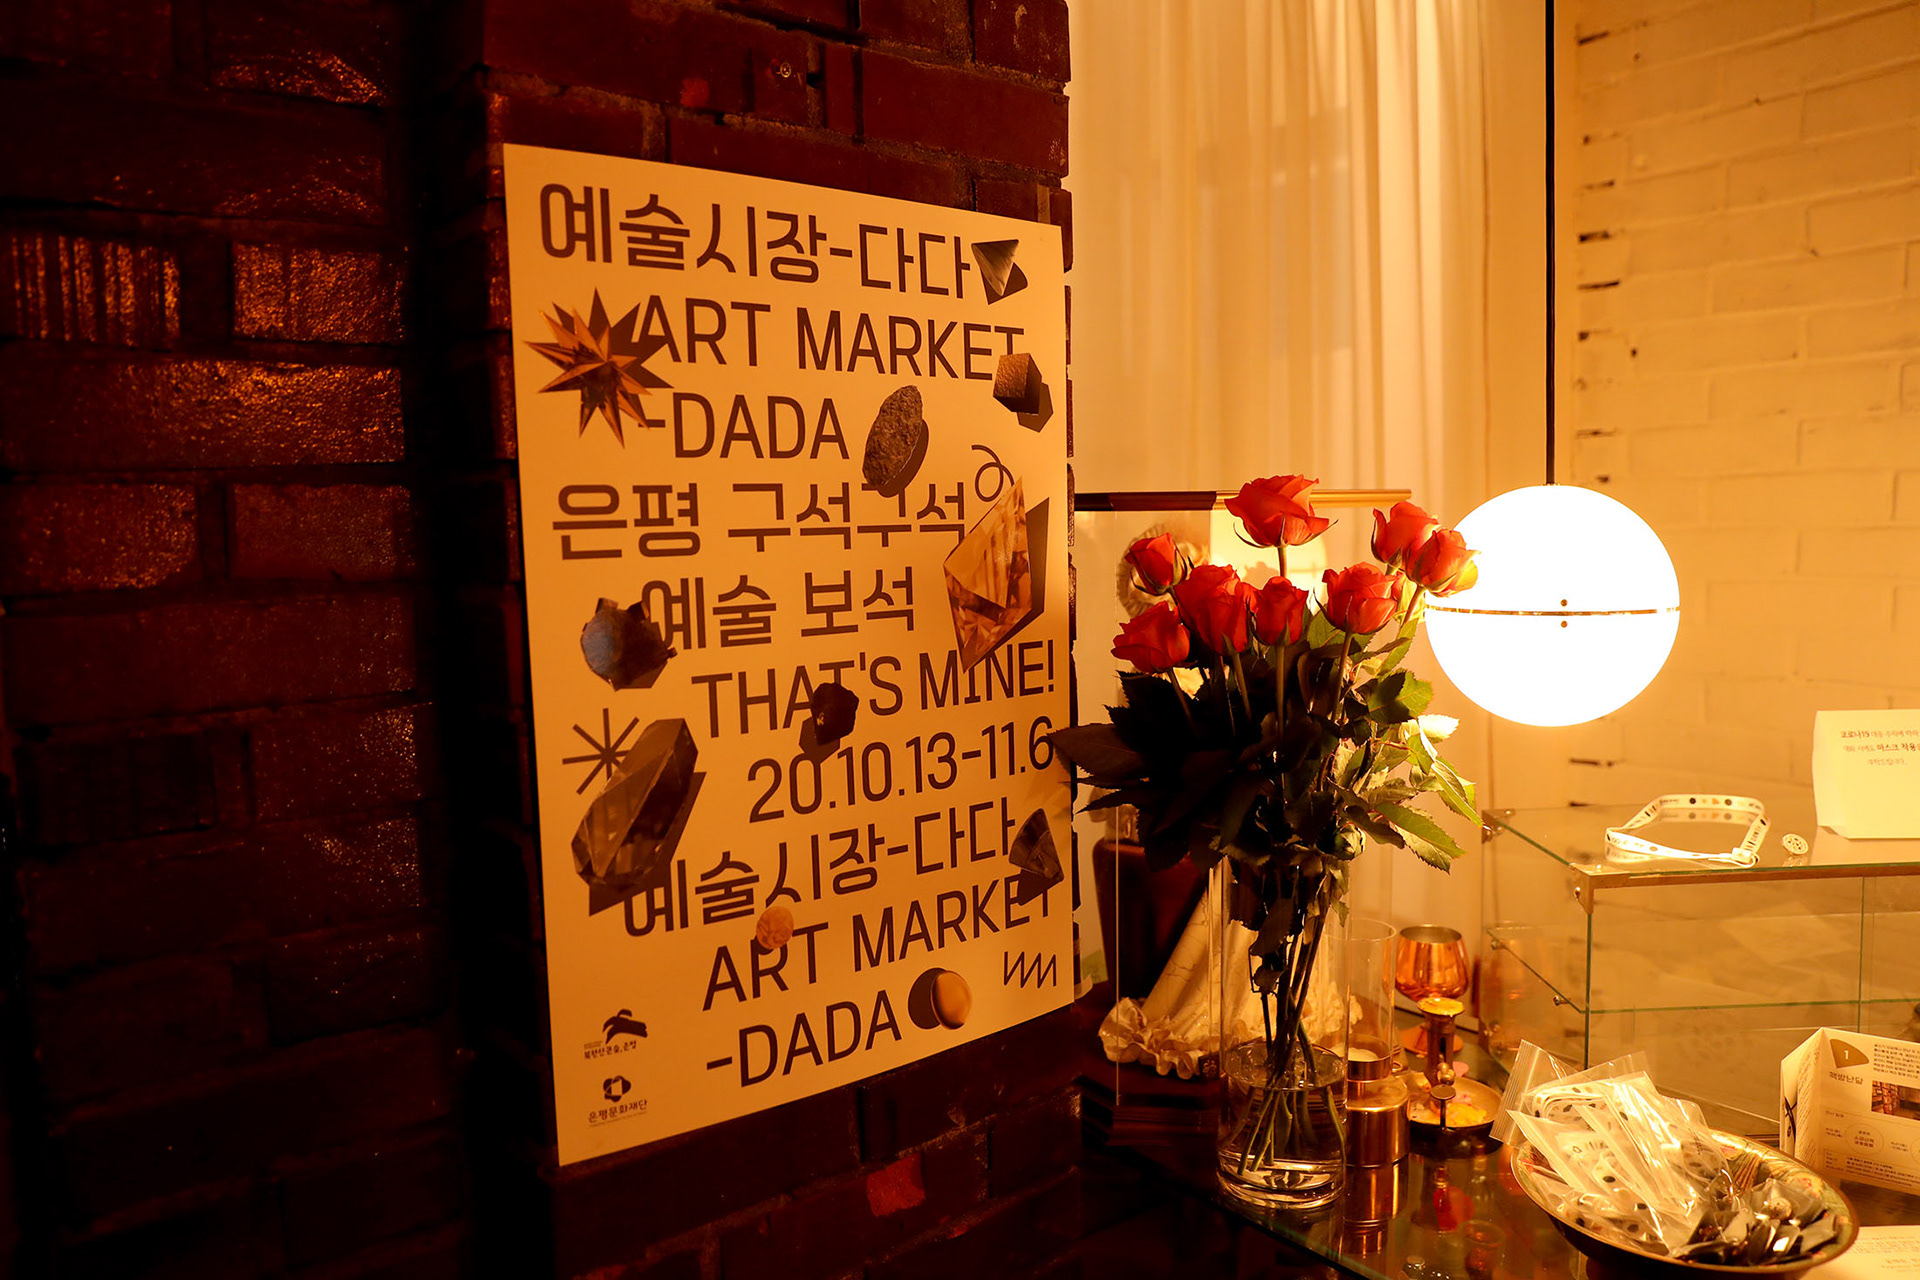 예술시장-다다
ART MARKET
-DADA
은평 구석구석
예술 보석
THAT'S MINE!
20.10.13-11.6
예술시장-다다
ART MARKET
-DADA
북한산큰숲, 은평
은평문화재단
코로나19
마스크 착용
1